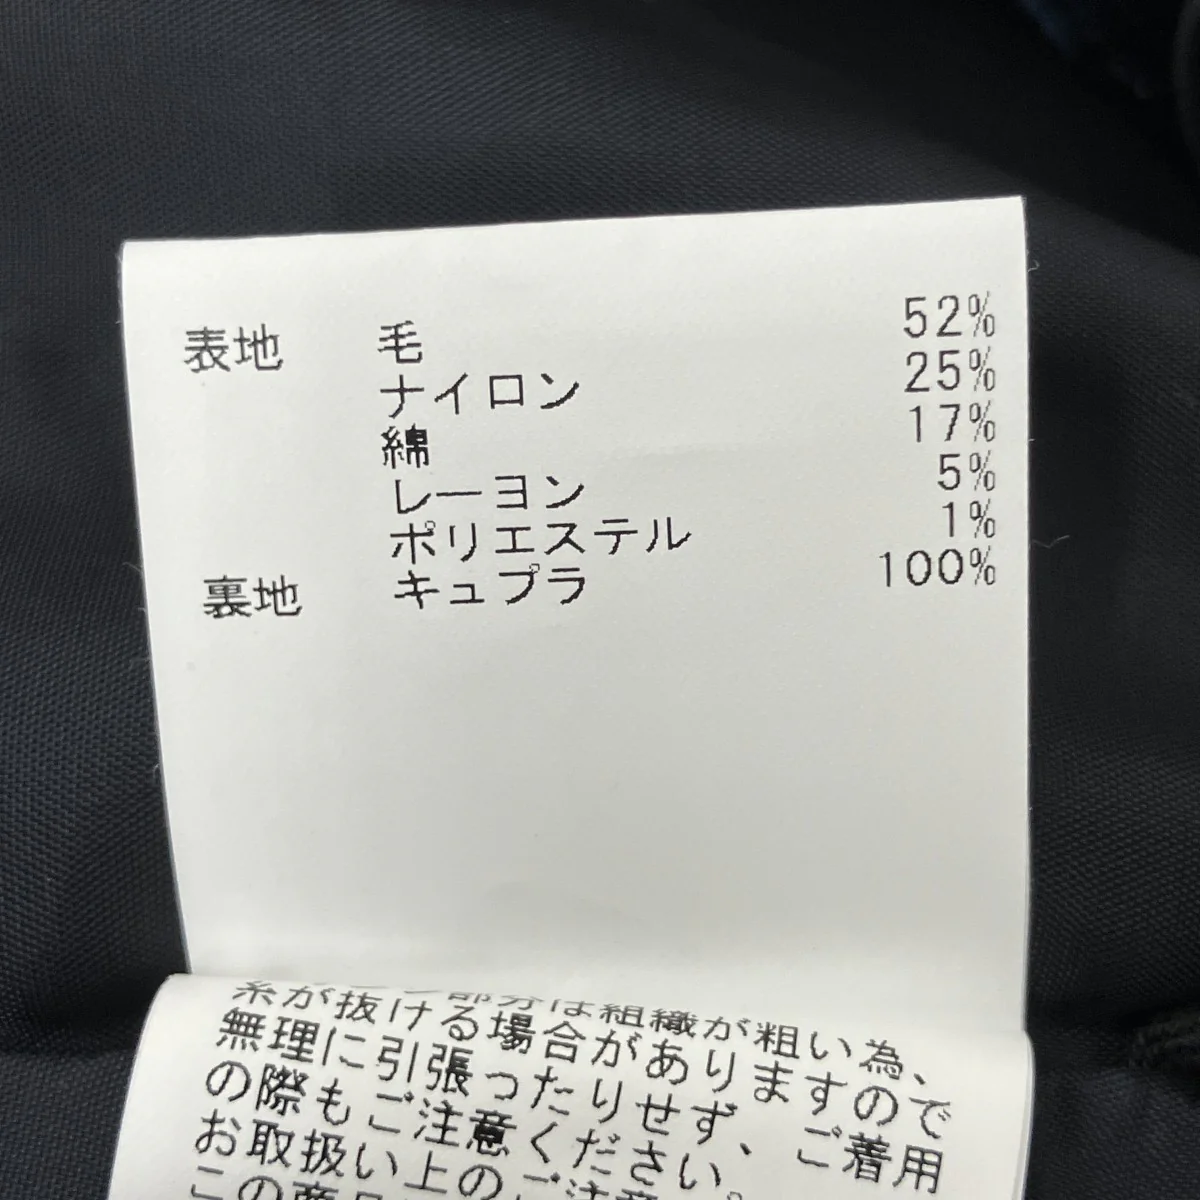 表地 毛 52%
ナイロン 25%
綿 17%
レーヨン 5%
ポリエステル 1%
裏地 キュプラ 100%
部分は組織が粗い為、
糸が抜ける場合がありますので
無理に引張ったりせず、ご着用
の際もご注意ください。
お取扱い上の
この商品